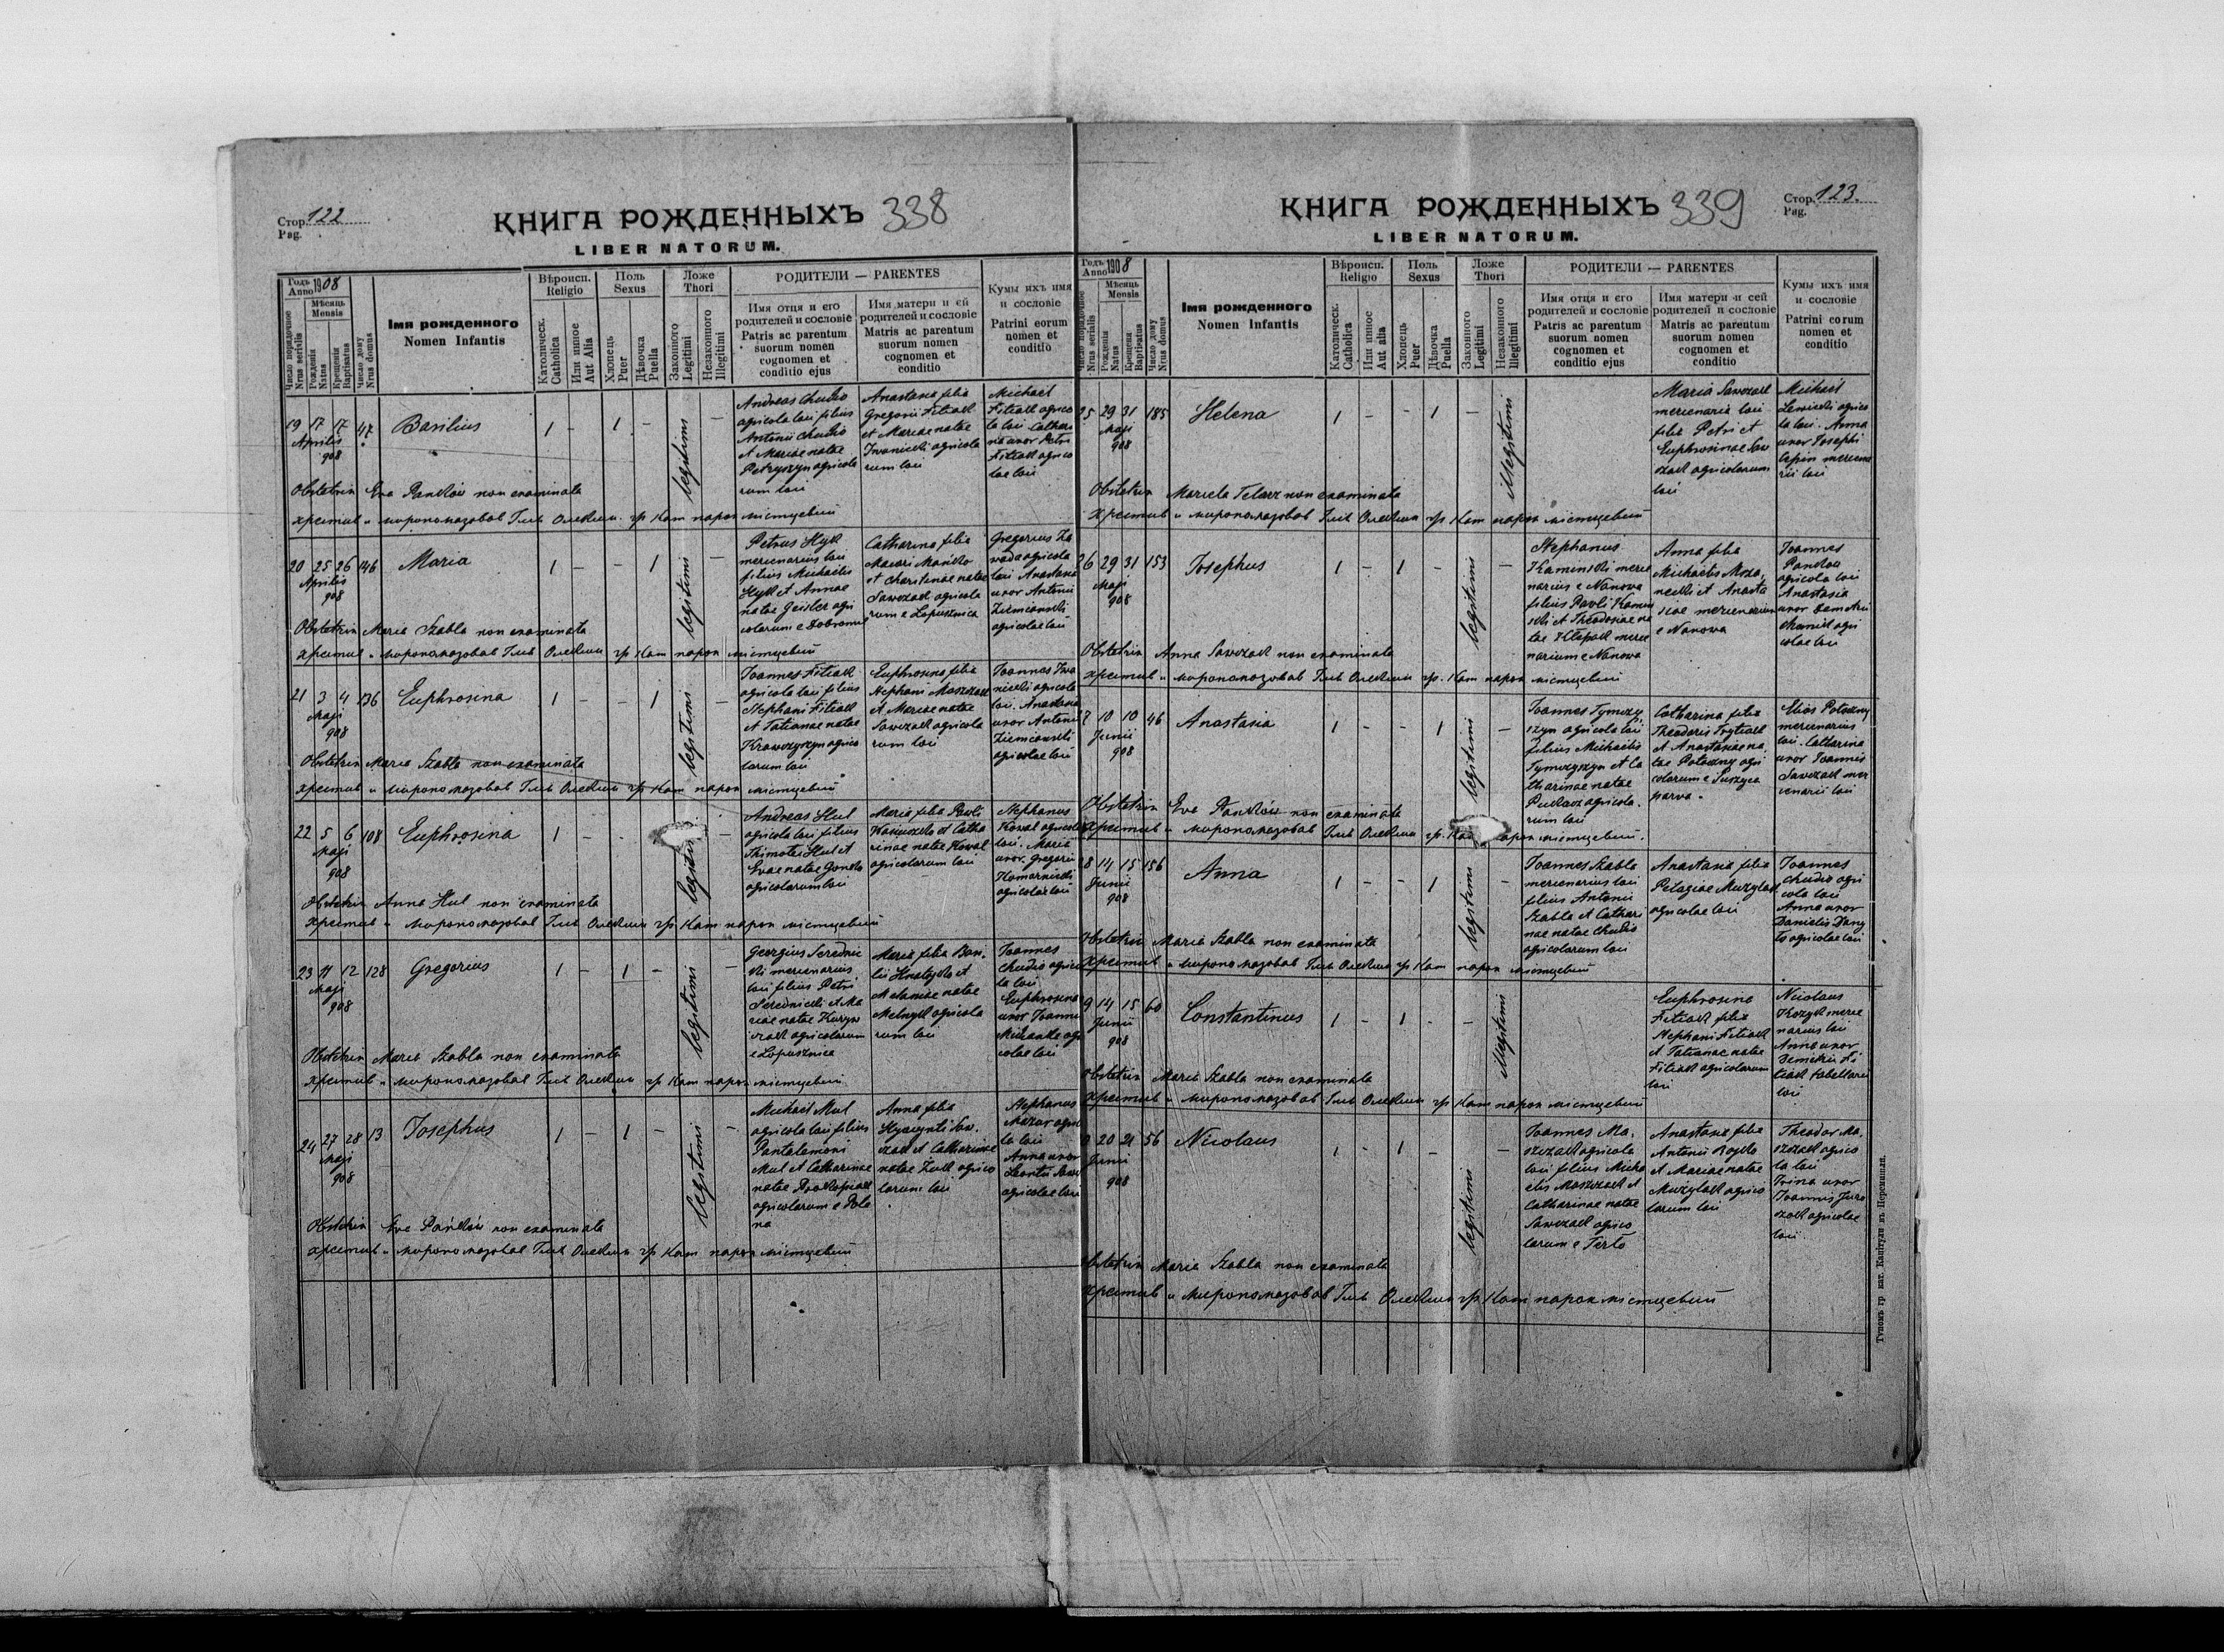 Стор. 122
Pag.
КНИГА РОЖДЕННЫХЪ 338
LIBER NATORUM.
Годъ Anno 1908
Мѣсяць
Mensis
Число порядочное
Nrus serialis
Рожденія
Natus
Крещенія
Baptisatus
Число дому
Nrus domus
Імя рожденного
Nomen Infantis
Вѣроисп.
Religio
Католическ.
Catholica
Или инное
Aut Alia
Поль
Sexus
Хлопець
Puer
Дѣвочка
Puella
Ложе
Thori
Законного
Legitimi
Незаконного
Illegitimi
РОДИТЕЛИ — PARENTES
Имя отця и его
родителей и сословіе
Patris ac parentum
suorum nomen
cognomen et
conditio ejus
Имя матери и ей
родителей и сословіе
Matris ac parentum
suorum nomen
cognomen et
conditio
Кумы ихъ имя
и сословіе
Patrini eorum
nomen et
conditio
19 17 17 47 Basilius 1 - 1 - legitimi -
Aprilis
908
Andreas Chudio
agricola loci filius
Antonii Chudio
et Mariae natae
Petryszyn agricola
rum loci
Anastasia filia
Gregorii Fitiak
et Mariae natae
Iwanicki agricola
rum loci
Michael
Fitiak agrico
la loci. Cathari
na uxor Petri
Fitiak agrico
lae loci
Obstetrix Eva Pankow non examinata
хрестив и миропомазовав Глѣб Олекши гр Кат парох місцевий
20 25 26 146 Maria 1 - - 1 legitimi -
Aprilis
908
Petrus Hyk
mercenarius loci
filius Michaelis
Hyk et Annae
natae Geisler agri
colarum e Dobromil
Catharina filia
Macari Mańko
et Charitinae natae
Sawczak agricola
rum e Lopusznica
Gregorius Za
wada agricola
loci Anastasia
uxor Antonii
Ziemianski
agricolae loci
Obstetrix Maria Szabla non examinata
хрестив и миропомазовав Глѣб Олекши гр Кат парох місцевий
21 3 4 136 Euphrosina 1 - - 1 legitimi -
Maji
908
Joannes Fitiak
agricola loci filius
Stephani Fitiak
et Tatianae natae
Krawczyszyn agrico
larum loci
Euphrosina filia
Stephani Moszczak
et Mariae natae
Sawczak agricola
rum loci
Joannes Iwa
nicki agricola
loci. Anastasia
uxor Antonii
Ziemianski
agricolae loci
Obstetrix Maria Szabla non examinata
хрестив и миропомазовав Глѣб Олекши гр Кат парох місцевий
22 5 6 108 Euphrosina 1 - -
Maji
908
Andreas Hul
agricola loci filius
Thimotei Hul et
Evae natae Gonko
agricolarum loci
Maria filia Pauli
et Catha
rinae natae Kowal
agricolarum loci
Stephanus
Kowal agricola
loci. Maria
uxor Gregorii
Komarnicki
agricolae loci
Obstetrix Anna Hul non examinata
хрестив и миропомазовав Глѣб Олекши гр Кат парох місцевий
23 11 12 128 Gregorius 1 - 1 - legitimi -
Maji
908
Georgius Serednic
ki mercenarius
loci filius Petri
Serednicki et Ma
riae natae
agricolarum
e Lopusznica
Maria filia Basi
lii Hnatyszko et
Melaniae natae
Melnyk agricola
rum loci
Joannes
Chudio agrico
la loci
Euphrosina
uxor Joannis
agri
colae loci
Obstetrix Maria Szabla non examinata
хрестив и миропомазовав Глѣб Олекши гр Кат парох місцевий
24 27 28 13 Josephus 1 - 1 - legitimi -
Maji
908
Michael Mul
agricola loci filius
Pantalemoni
Mul et Catharinae
natae Prokopiak
agricolarum e Pole
na
Anna filia
Hyacynti Saw
czak et Catharinae
natae Żuk agrico
larum loci
Stephanus
Mazur agrico
la loci
Anna uxor
Leontii
agricolae loci
Obstetrix Eva Pańków non examinata
хрестив и миропомазовав Глѣб Олекши гр Кат парох місцевий
Стор. 123.
Pag.
КНИГА РОЖДЕННЫХЪ 339
LIBER NATORUM.
Годъ Anno 1908
Мѣсяць
Mensis
Число порядочное
Nrus serialis
Рожденія
Natus
Крещенія
Baptisatus
Число дому
Nrus domus
Імя рожденного
Nomen Infantis
Вѣроисп.
Religio
Католическ.
Catholica
Или инное
Aut alia
Поль
Sexus
Хлопець
Puer
Дѣвочка
Puella
Ложе
Thori
Законного
Legitimi
Незаконного
Illegitimi
РОДИТЕЛИ — PARENTES
Имя отця и его
родителей и сословіе
Patris ac parentum
suorum nomen
cognomen et
conditio ejus
Имя матери и сей
родителей и сословіе
Matris ac parentum
suorum nomen
cognomen et
conditio
Кумы ихъ имя
и сословіе
Patrini eorum
nomen et
conditio
25 29 31 185 Helena 1 - - 1 - illegitimi
Maji
908
Maria Sawczak
mercenaria loci
filia Petri et
Euphrosinae Saw
czak agricolarum
loci
Michael
Lewicki agrico
la loci. Anna
uxor Josephi
mercena
rii loci
Obstetrix Mariela Telarz non examinata
хрестив и миропомазовав Глѣб Олекши гр Кат парох місцевий
26 29 31 153 Josephus 1 - 1 - legitimi -
Maji
908
Stephanus
Kaminski merce
narius e Nanowa
filius Pavli Kamin
ski et Theodosiae na
tae Klepak merce
narium e Nanowa
Anna filia
Michaelis
et Anasta
siae mercenarium
e Nanowa
Joannes
Pankow
agricola loci
Anastasia
uxor Demetrii
agri
colae loci
Obstetrix Anna Sawczak non examinata
хрестив и миропомазовав Глѣб Олекши гр. Кат парох місцевий
7 10 10 46 Anastasia 1 - - 1 legitimi -
Junii
908
Joannes Tymczy
szyn agricola loci
filius Michaelis
Tymczyszyn et Ca
tharinae natae
agricola
rum loci
Catharina filia
Theodoris Frytiak
et Anastasiae na
tae Potoczny agri
colarum e Suszyca
parva.
Elias Potoczny
mercenarius
loci. Catharina
uxor Joannis
Sawczak mer
cenarii loci
Obstetrix Eva Pańków non examinata
хрестив и миропомазовав Глѣб Олекши гр. Кат парох місцевий.
8 14 15 156 Anna 1 - - 1 legitimi -
Junii
908
Joannes Szabla
mercenarius loci
filius Antonii
Szabla et Cathari
nae natae Chudio
agricolarum loci
Anastasia filia
Pelagiae Muzylak
agricolae loci
Joannes
Chudio agri
cola loci
Anna uxor
Danielis
agricolae loci
Obstetrix Maria Szabla non examinata
хрестив и миропомазовав Глѣб Олекши гр Кат парох місцевий
9 14 15 60 Constantinus 1 - 1 - - illegitimi
Junii
908
Euphrosina
Fitiak filia
Stephani Fitiak
et Tatianae natae
Fitiak agricolarum
loci
Nicolaus
Kozyk merce
narius loci
Anna uxor
Demetrii Fi
tiak tabellarii
loci
Obstetrix Maria Szabla non examinata
хрестив и миропомазовав Глѣб Олекши гр Кат парох місцевий
20 21 56 Nicolaus 1 - 1 - legitimi -
Junii
908
Joannes Ma
szczak agricola
loci filius Micha
elis Maszczak et
Catharinae natae
Sawczak agrico
larum e Terło
Anastasia filia
Antonii Hojdo
et Mariae natae
Muzylak agrico
larum loci
Theodor Ma
szczak agrico
la loci
Irina uxor
Joannis Jura
szek agricolae
loci.
Obstetrix Maria Szabla non examinata
хрестив и миропомазовав Глѣб Олекши гр Кат парох місцевий
Тупомъ гр кат. Капітули въ Перемишли.